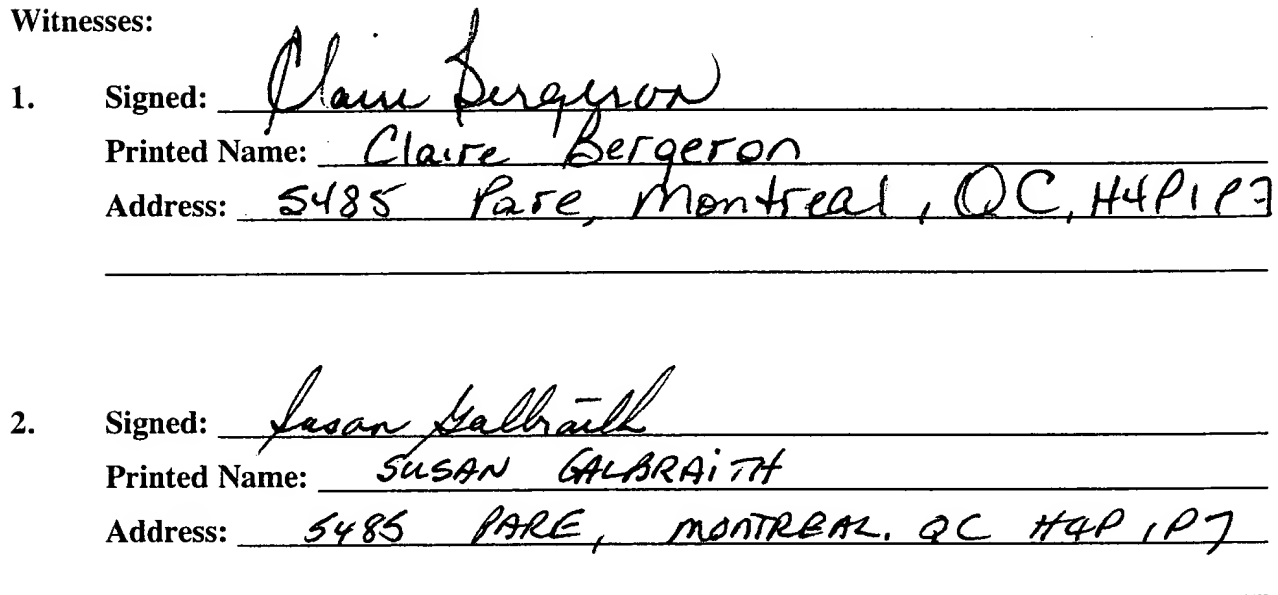 Witnesses:
1. Signed: Claire Bergeron
Printed Name: Claire Bergeron
Address: 5485 Pare, Montreal, QC, H4P1P7
2. Signed: Susan Galbraith
Printed Name: SUSAN GALBRAITH
Address: 5485 PARE, MONTREAL. QC H4P 1P7